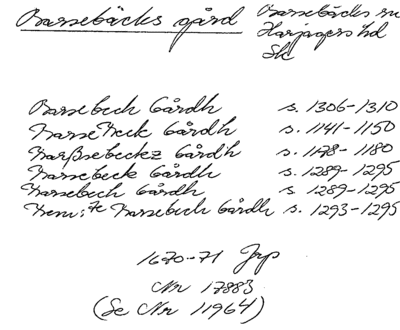 Barsebäcks gård Barsebäcks sn
Harjagers hd
Sk
Barsebech Gårdh s. 1306-1310
Barse Beck Gårdh s. 1141-1150
Barßsebeckz Gårdh s. 1178-1180
Barsebeck Gårdh s. 1289-1295
Barsebech Gårdh s. 1289-1295
Barsebech Gårdh s. 1293-1295
1670-71 Jrp
Nr 17883
(Se Nr 11964)